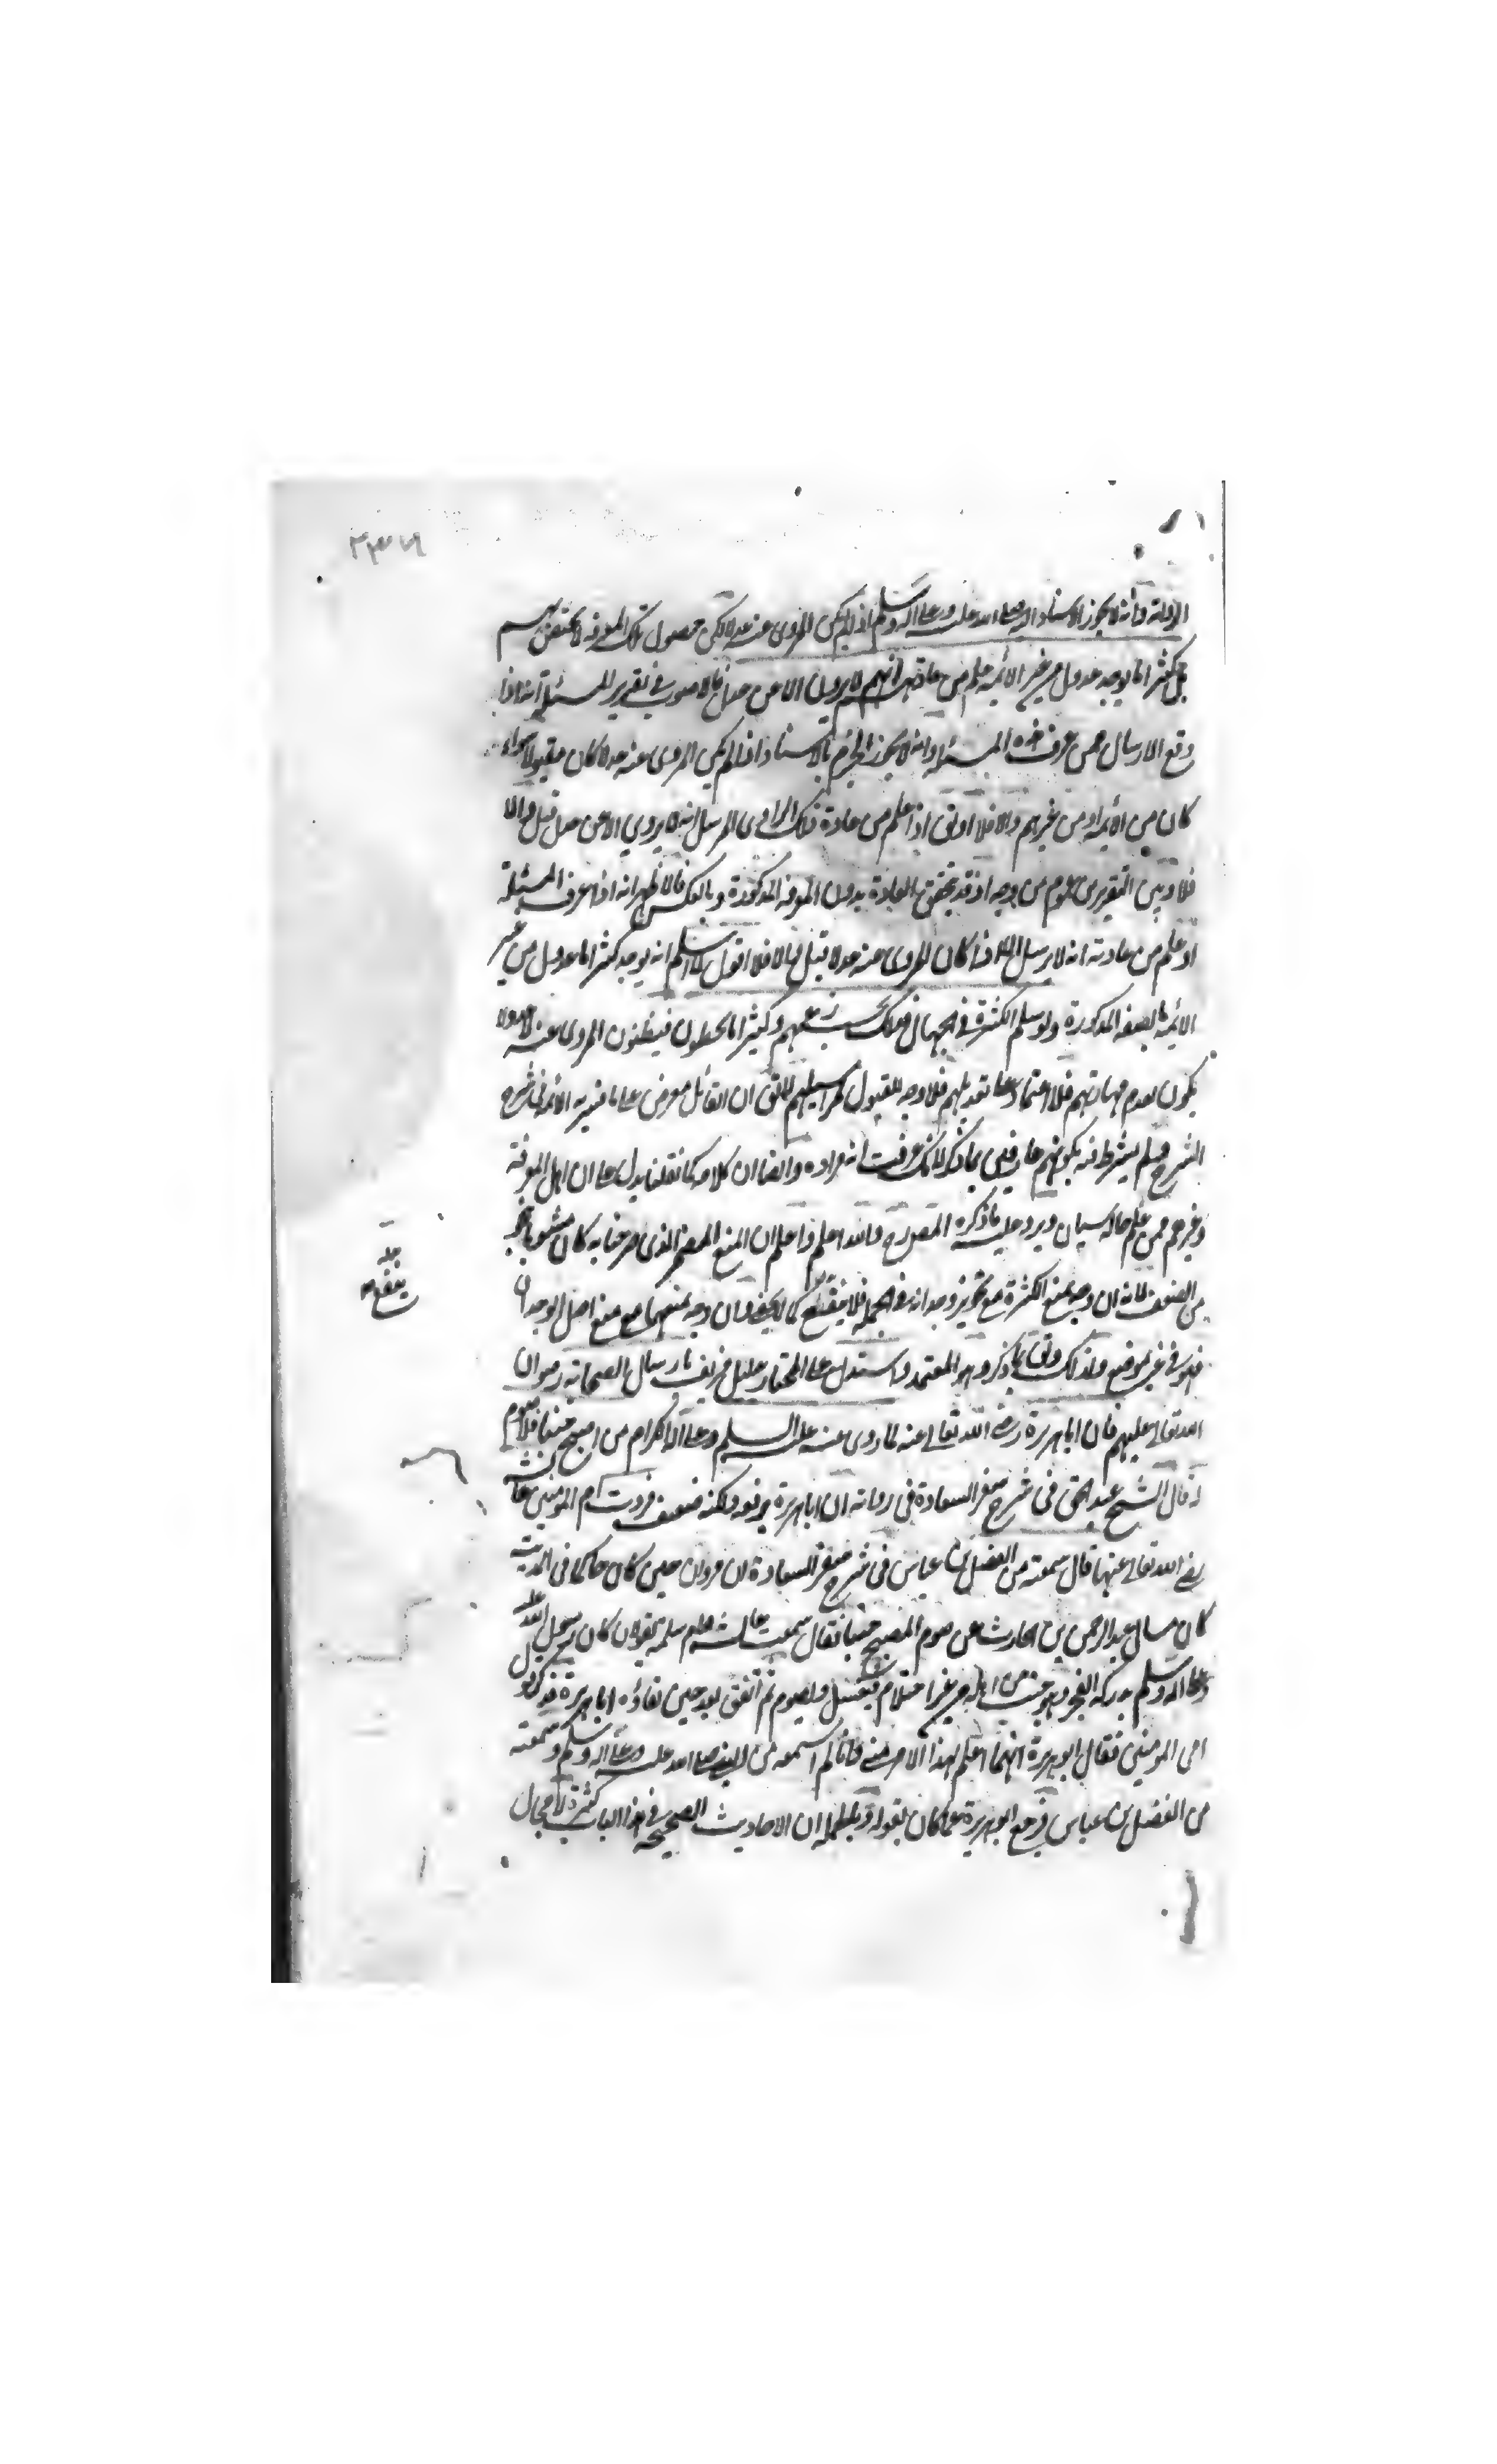 ٢٣٧٦
الرواية وأنه لا يجوز الاسناد اليه صلى الله عليه وعلى آله وسلم اذا لم يكن المروى عنه عدلا لكن حصول تلك المعرفة لا يختص بهم
بل كثيرا ما يوجد عدول من غير الأئمة علم من عادتهم انهم لا يروون الا عن عدل فالاصوب في تقرير المسئلة انه اذا
وقع الارسال ممن عرف هذه المسئلة وانه لا يجوز الجزم بالاسناد اذا لم يكن المروى عنه عدلا كان مقبولا سواء
كان من الأئمة او من غيرهم والا فلا او نقول اذا علم من عادة ذلك الراوى المرسل انه لا يروي الا عن عدل قبل والا
فلا وبين التقريرين عموم من وجه اذ قد يتحقق العادة بدون المعرفة المذكورة وبالعكس فالاظهر انه اذا عرف المسئلة
او علم من عادته انه لا يرسل الا اذا كان المروى عنه عدلا قبل والا فلا اقول لا نسلم انه يوجد كثيرا ما عدول من غير
الأئمة بالصفة المذكورة ولو سلم الكثرة في الجهال فذلك بحسب زعمهم وكثيرا ما يخطون فيظنون المروى عنه عدولا
يكون لعدم مهارتهم فلا اعتماد على تعديلهم فلا وجه لقبول مراسيلهم
الشرح ولم يشترط فيه كونهم عارفين بما ذكر لانك عرفت انه مراده وايضا ان كلامه كما نقلنا يدل على ان اهل المعرفة
وغيرهم ممن علم حاله سيان ويرد عليه ما ذكره المص رح والله اعلم واعلم ان المنع المضمر الذى صرحنا به كان مشوبا بنحو
من الضعف لانه ان وجه بمنع الكثرة مع تجويز وجدانه في الجملة فلا ينفع كما لا يخفى وان وجه بمنعهما مع منع اصل الوجدان
فهو في غير موقعه ولذلك وثق بما ذكر وهو المعتمد واستدل على المختار بدليل مزيف بارسال الصحابة رضوان
الله تعالى عليهم فان ابا هريرة رضى الله تعالى عنه لما روى عنه عليه السلم وعلى آله الكرام من اصبح جنبا فلا صوم له
قال الشيخ عبد الحق في شرح سفر السعادة في رواية ان ابا هريرة يرفعه ولكنه ضعيف فردت ام المؤمنين عائشة
رضى الله تعالى عنها قال سمعته من الفضل بن عباس في شرح سفر السعادة ان مروان حين كان حاكما في المدينة
كان سال عبد الرحمن بن الحارث عن صوم المصبح جنبا فقال سمعت عائشة وام سلمة يقولان كان رسول الله صلى الله عليه
وعلى آله وسلم يدركه الفجر وهو جنب من اهله من غير احتلام فيغتسل ويصوم ثم اتفق بعد حين لقاؤه ابا هريرة فذكر قول
امى المؤمنين فقال ابو هريرة انهما اعلم بهذا الامر منى وانا لم اسمعه من النبى صلى الله عليه وعلى آله وسلم وسمعته
من الفضل بن عباس فرجع ابو هريرة عما كان يقوله وبالجملة ان الاحاديث الصحيحة في هذا الباب كثيرة لا مجال